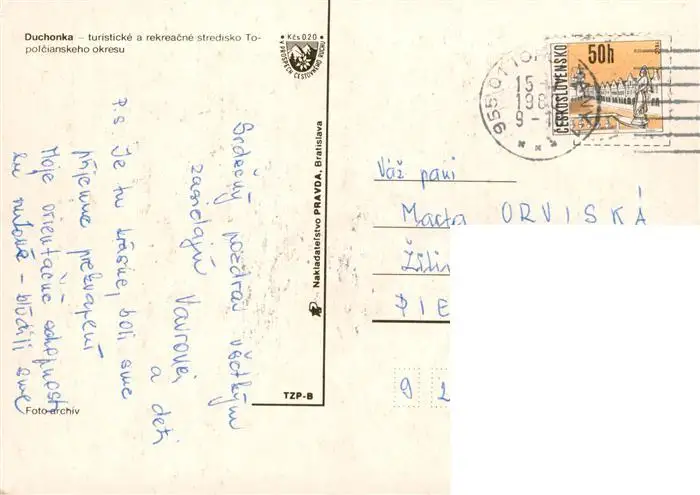 Duchonka – turistické a rekreačné stredisko To-
poľčianskeho okresu
Kčs 0,20
V PROSPECH CESTOVNÉHO RUCHU
Srdečný pozdrav všetkým
zasielajú Vavrovei
a deti
P.s. Je tu krásne, boli sme
príjemne prekvapení
Moje orientačné schopnosti
sú nulové – blúdili sme
Foto archív
TZP-B
Nakladateľstvo PRAVDA, Bratislava
955 01 TO
15
198
9-1
50h
ČESKOSLOVENSKO
Váž pani
Marta ORVISKÁ
Žilin
PIE
9 2